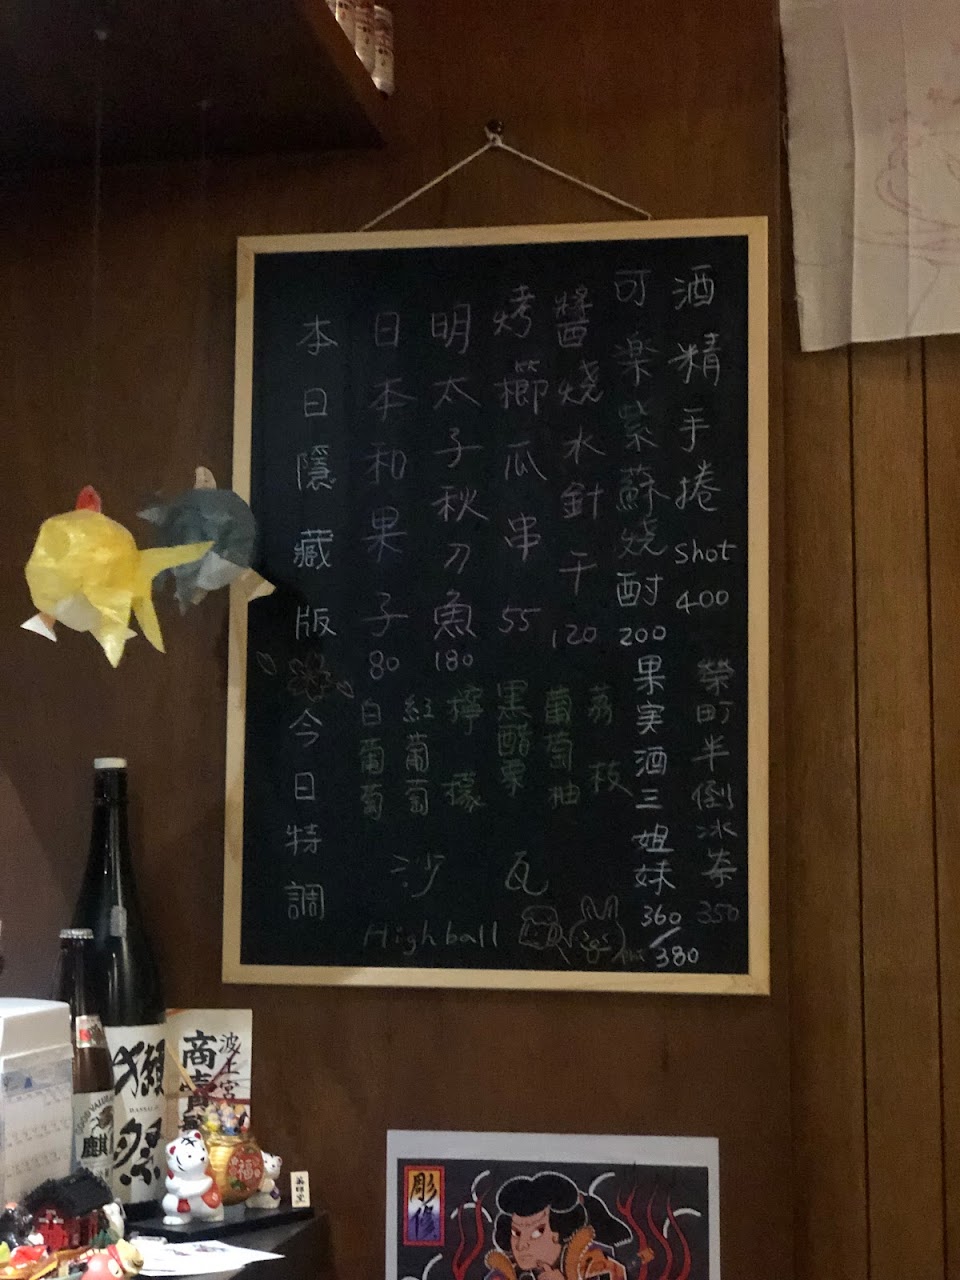 酒精手捲 shot 400
可楽紫蘇燒酎 200
醬燒水針干 120
烤櫛瓜串 55
明太子秋刀魚 180
日本和果子 80
本日隱藏版
榮町半倒冰茶 350
果実酒三姐妹 360/380
荔枝
葡萄柚
黑醋栗
檸檬
紅葡萄
白葡萄
沙瓦
Highball
今日特調
獺祭
麒
波上宮
商賣
福
彫修